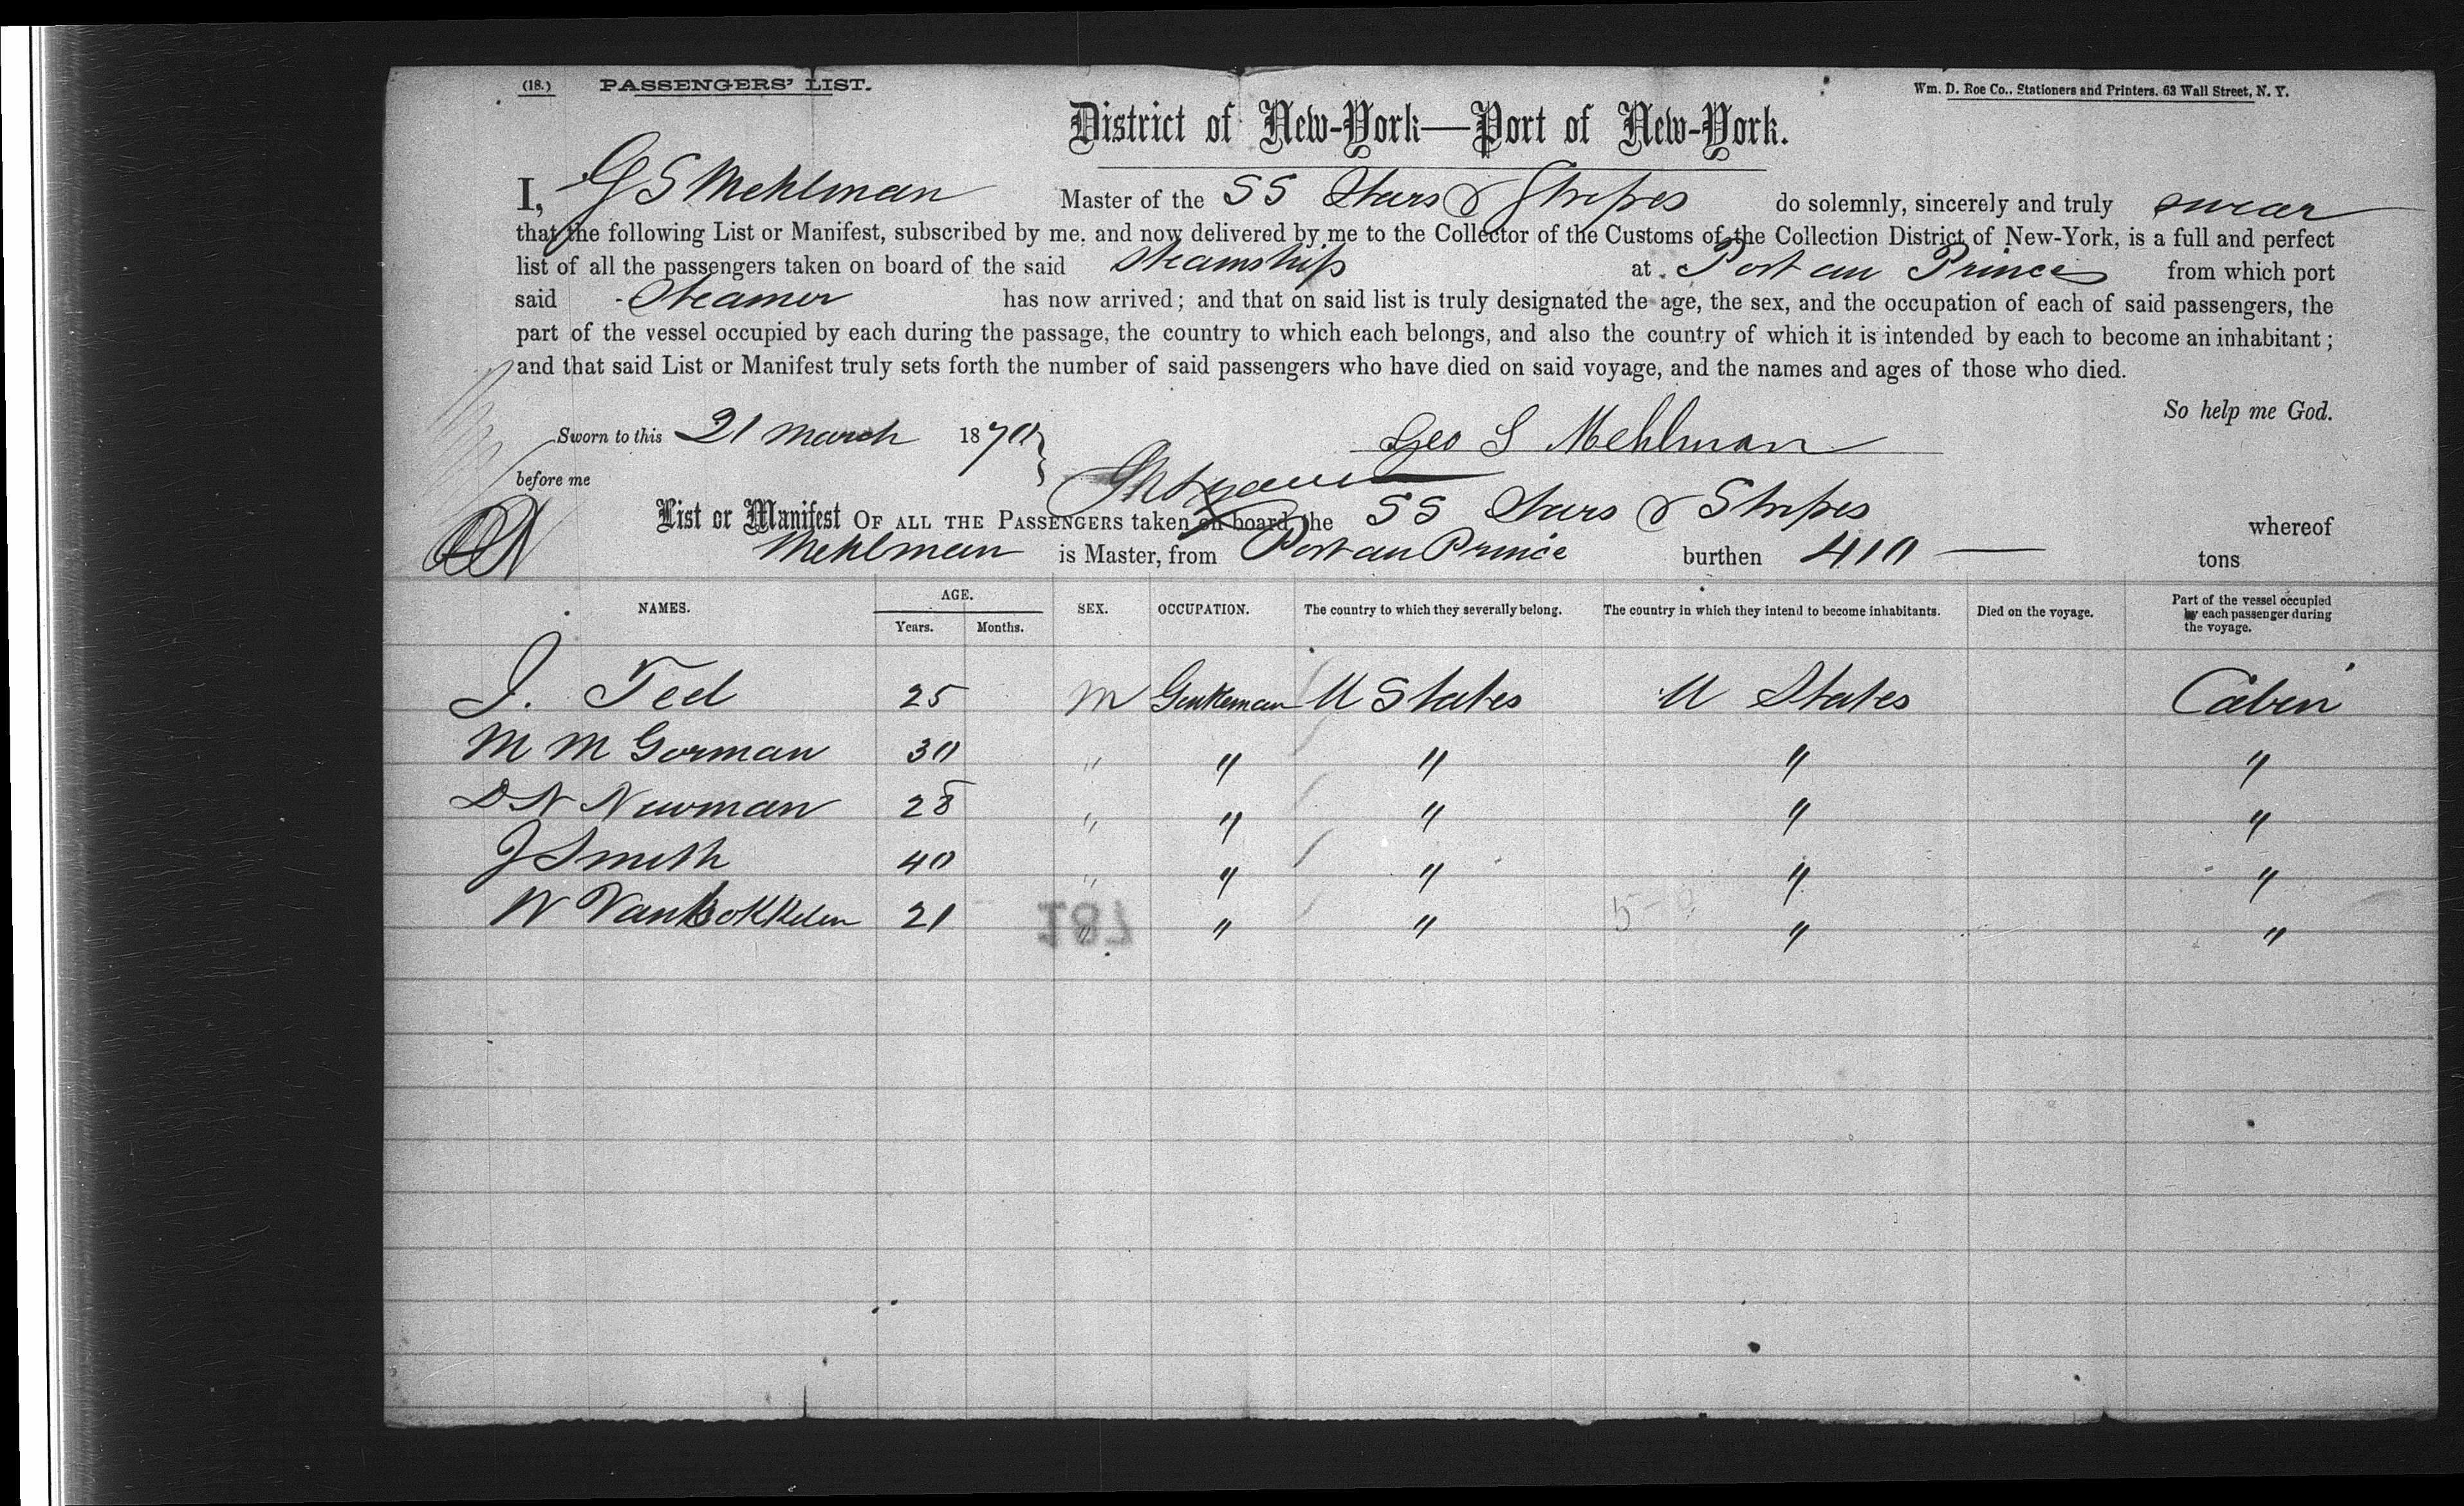 (18.) PASSENGERS' LIST. Wm. D. Roe Co., Stationers and Printers, 63 Wall Street, N. Y.
District of New-York—Port of New-York.
I, G S Mehlman Master of the SS Stars & Stripes do solemnly, sincerely and truly swear
that the following List or Manifest, subscribed by me, and now delivered by me to the Collector of the Customs of the Collection District of New-York, is a full and perfect
list of all the passengers taken on board of the said Steamship at Port au Prince from which port
said Steamer has now arrived; and that on said list is truly designated the age, the sex, and the occupation of each of said passengers, the
part of the vessel occupied by each during the passage, the country to which each belongs, and also the country of which it is intended by each to become an inhabitant;
and that said List or Manifest truly sets forth the number of said passengers who have died on said voyage, and the names and ages of those who died.
So help me God.
Sworn to this 21 March 1870 Geo S Mehlman
before me
List or Manifest OF ALL THE PASSENGERS taken on board the SS Stars & Stripes whereof
Mehlman is Master, from Port au Prince burthen 410 — tons
NAMES. AGE. Years. Months. SEX. OCCUPATION. The country to which they severally belong. The country in which they intend to become inhabitants. Died on the voyage. Part of the vessel occupied by each passenger during the voyage.
J. Ted 25 M Gentleman U States U States Cabin
M M Gorman 30 " " " " "
D N Newman 28 " " " " "
J Smith 40 " " " " "
W VanBokkelen 21 " " " " "
187